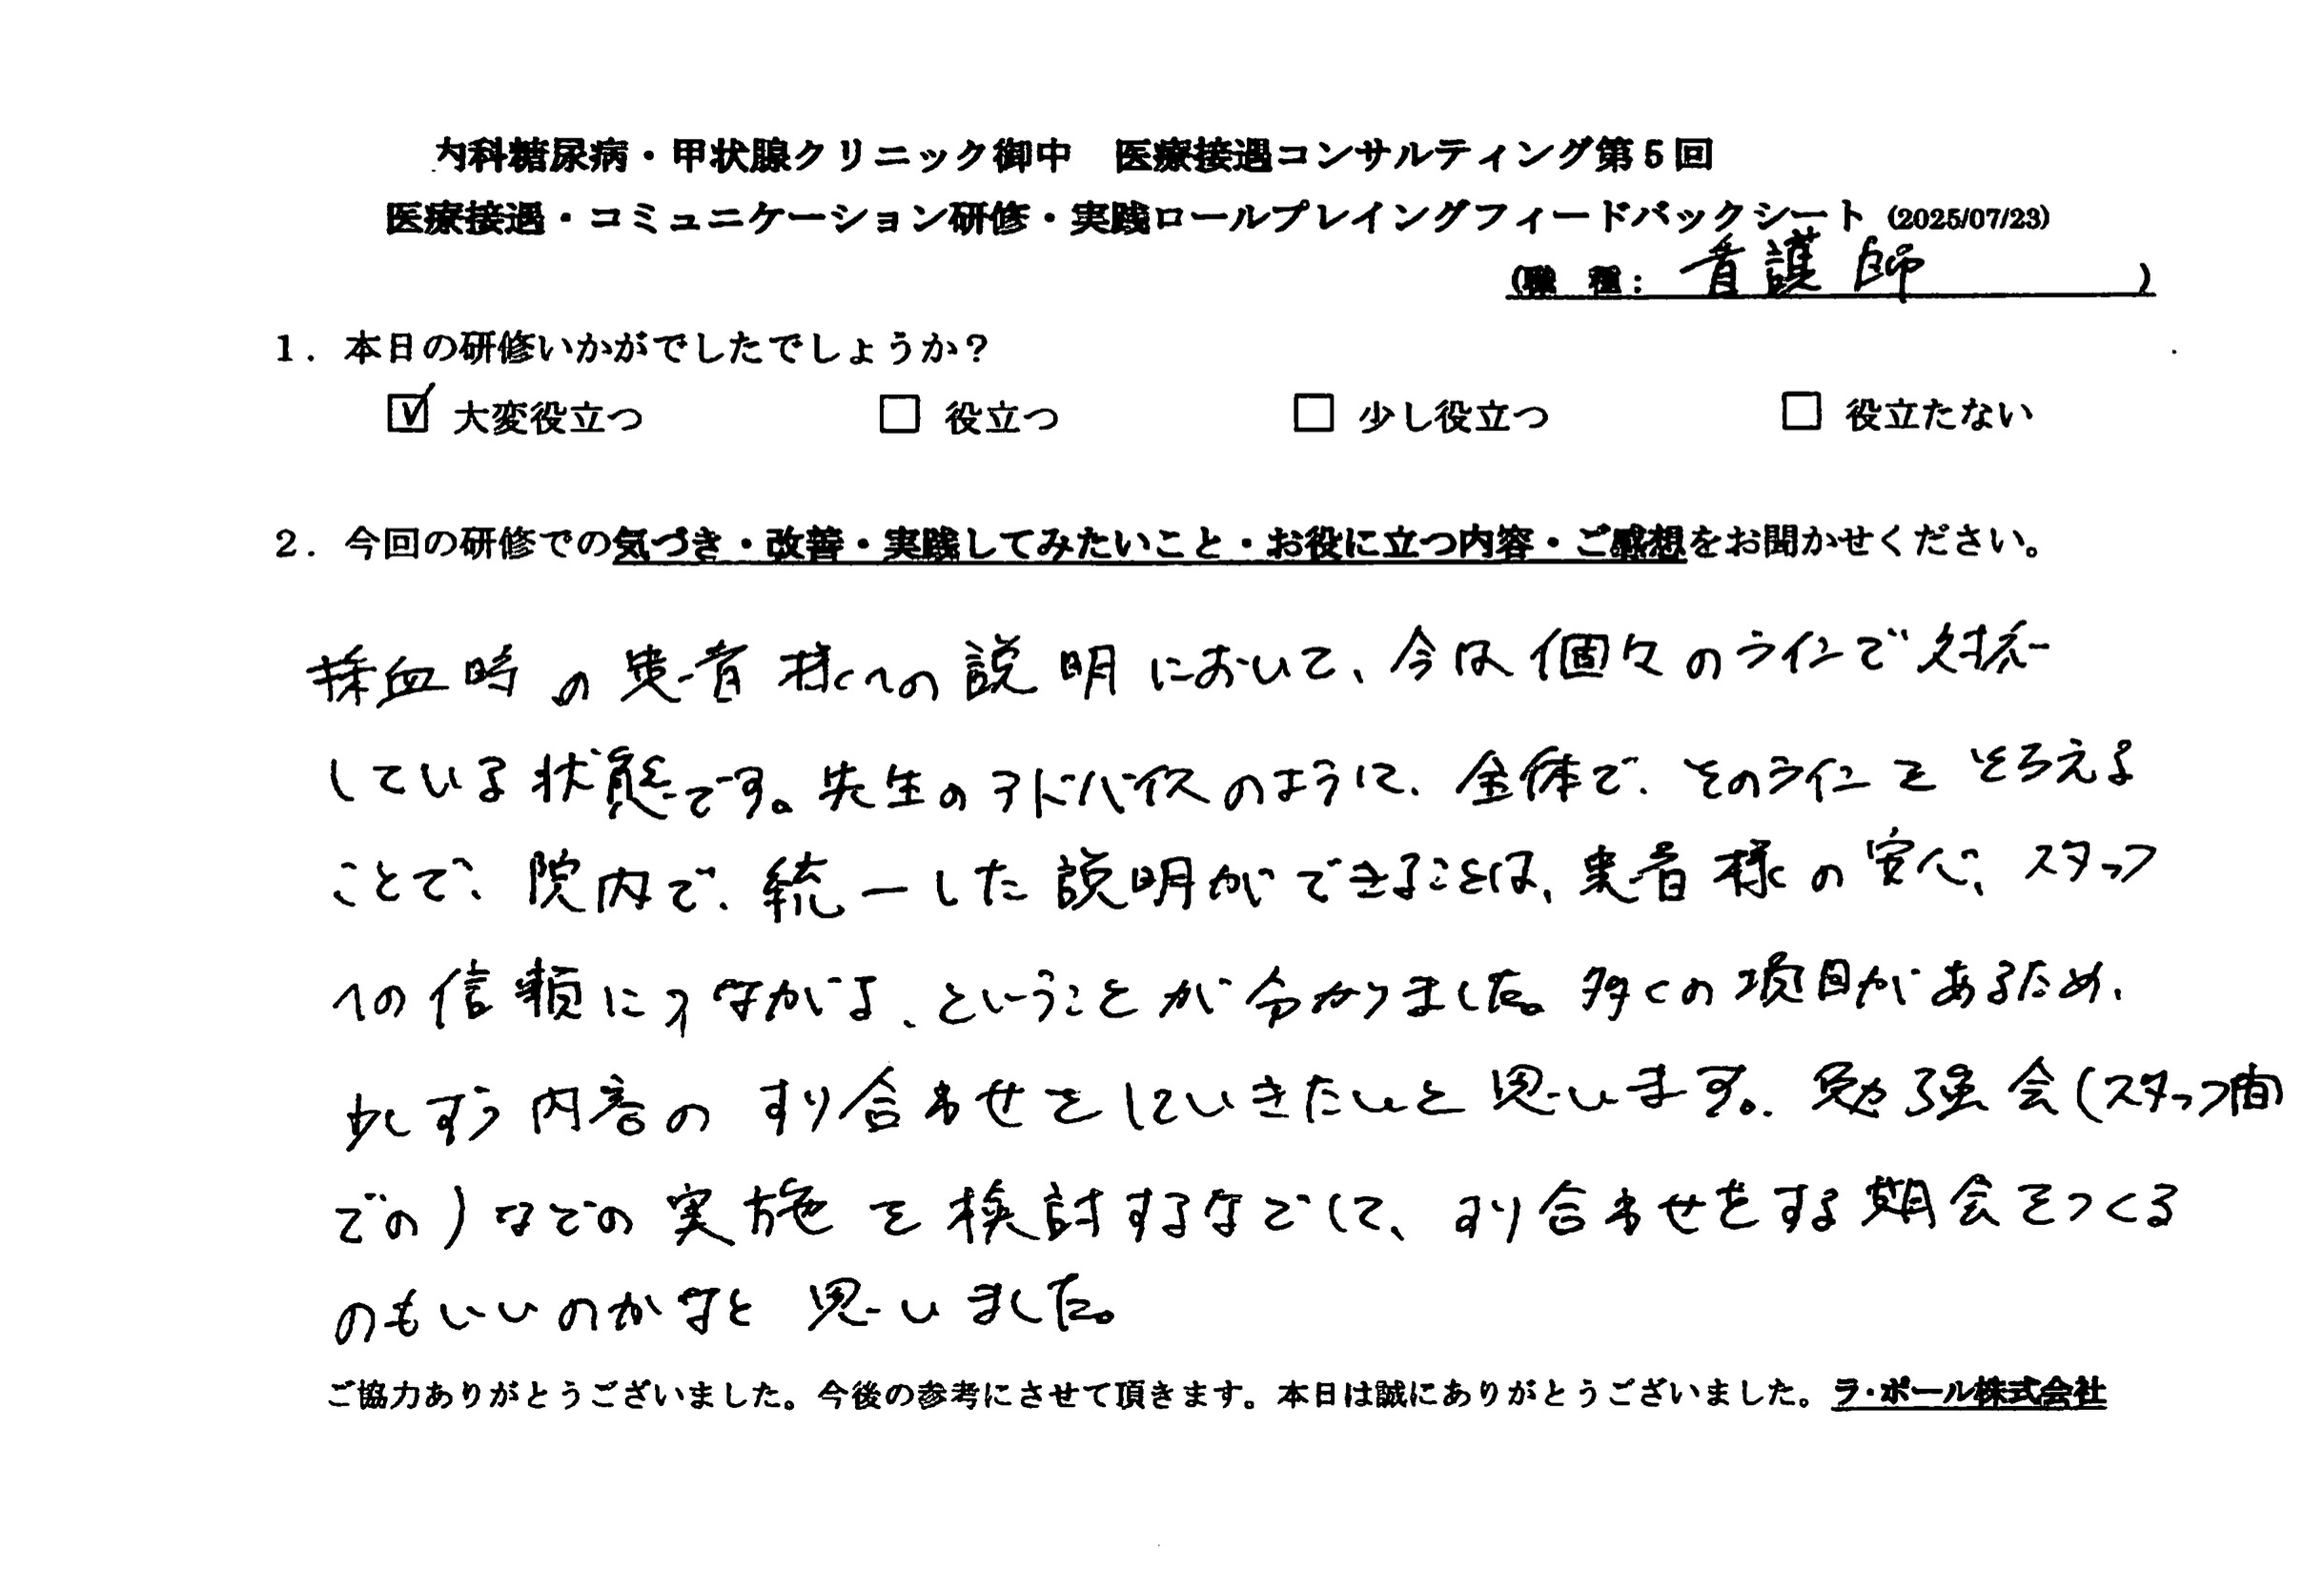 内科糖尿病・甲状腺クリニック御中　医療接遇コンサルティング第5回
医療接遇・コミュニケーション研修・実践ロールプレイングフィードバックシート (2025/07/23)
(職　種：　看護師　　　)
1．本日の研修いかがでしたでしょうか？
☑ 大変役立つ　□ 役立つ　□ 少し役立つ　□ 役立たない
2．今回の研修での気づき・改善・実践してみたいこと・お役に立つ内容・ご感想をお聞かせください。
採血時の患者様への説明において、今は個々のラインで対応
している状態です。先生のアドバイスのように、全体で、そのラインをそろえる
ことで、院内で、統一した説明ができることは、患者様の安心、スタッフ
への信頼につながる、ということが分かりました。多くの項目があるため、
少しずつ内容のすり合わせをしていきたいと思います。勉強会(スタッフ間
での)などの実施を検討するなどして、すり合わせをする期会をつくる
のもいいのかなと思いました。
ご協力ありがとうございました。今後の参考にさせて頂きます。本日は誠にありがとうございました。ラ・ポール株式会社